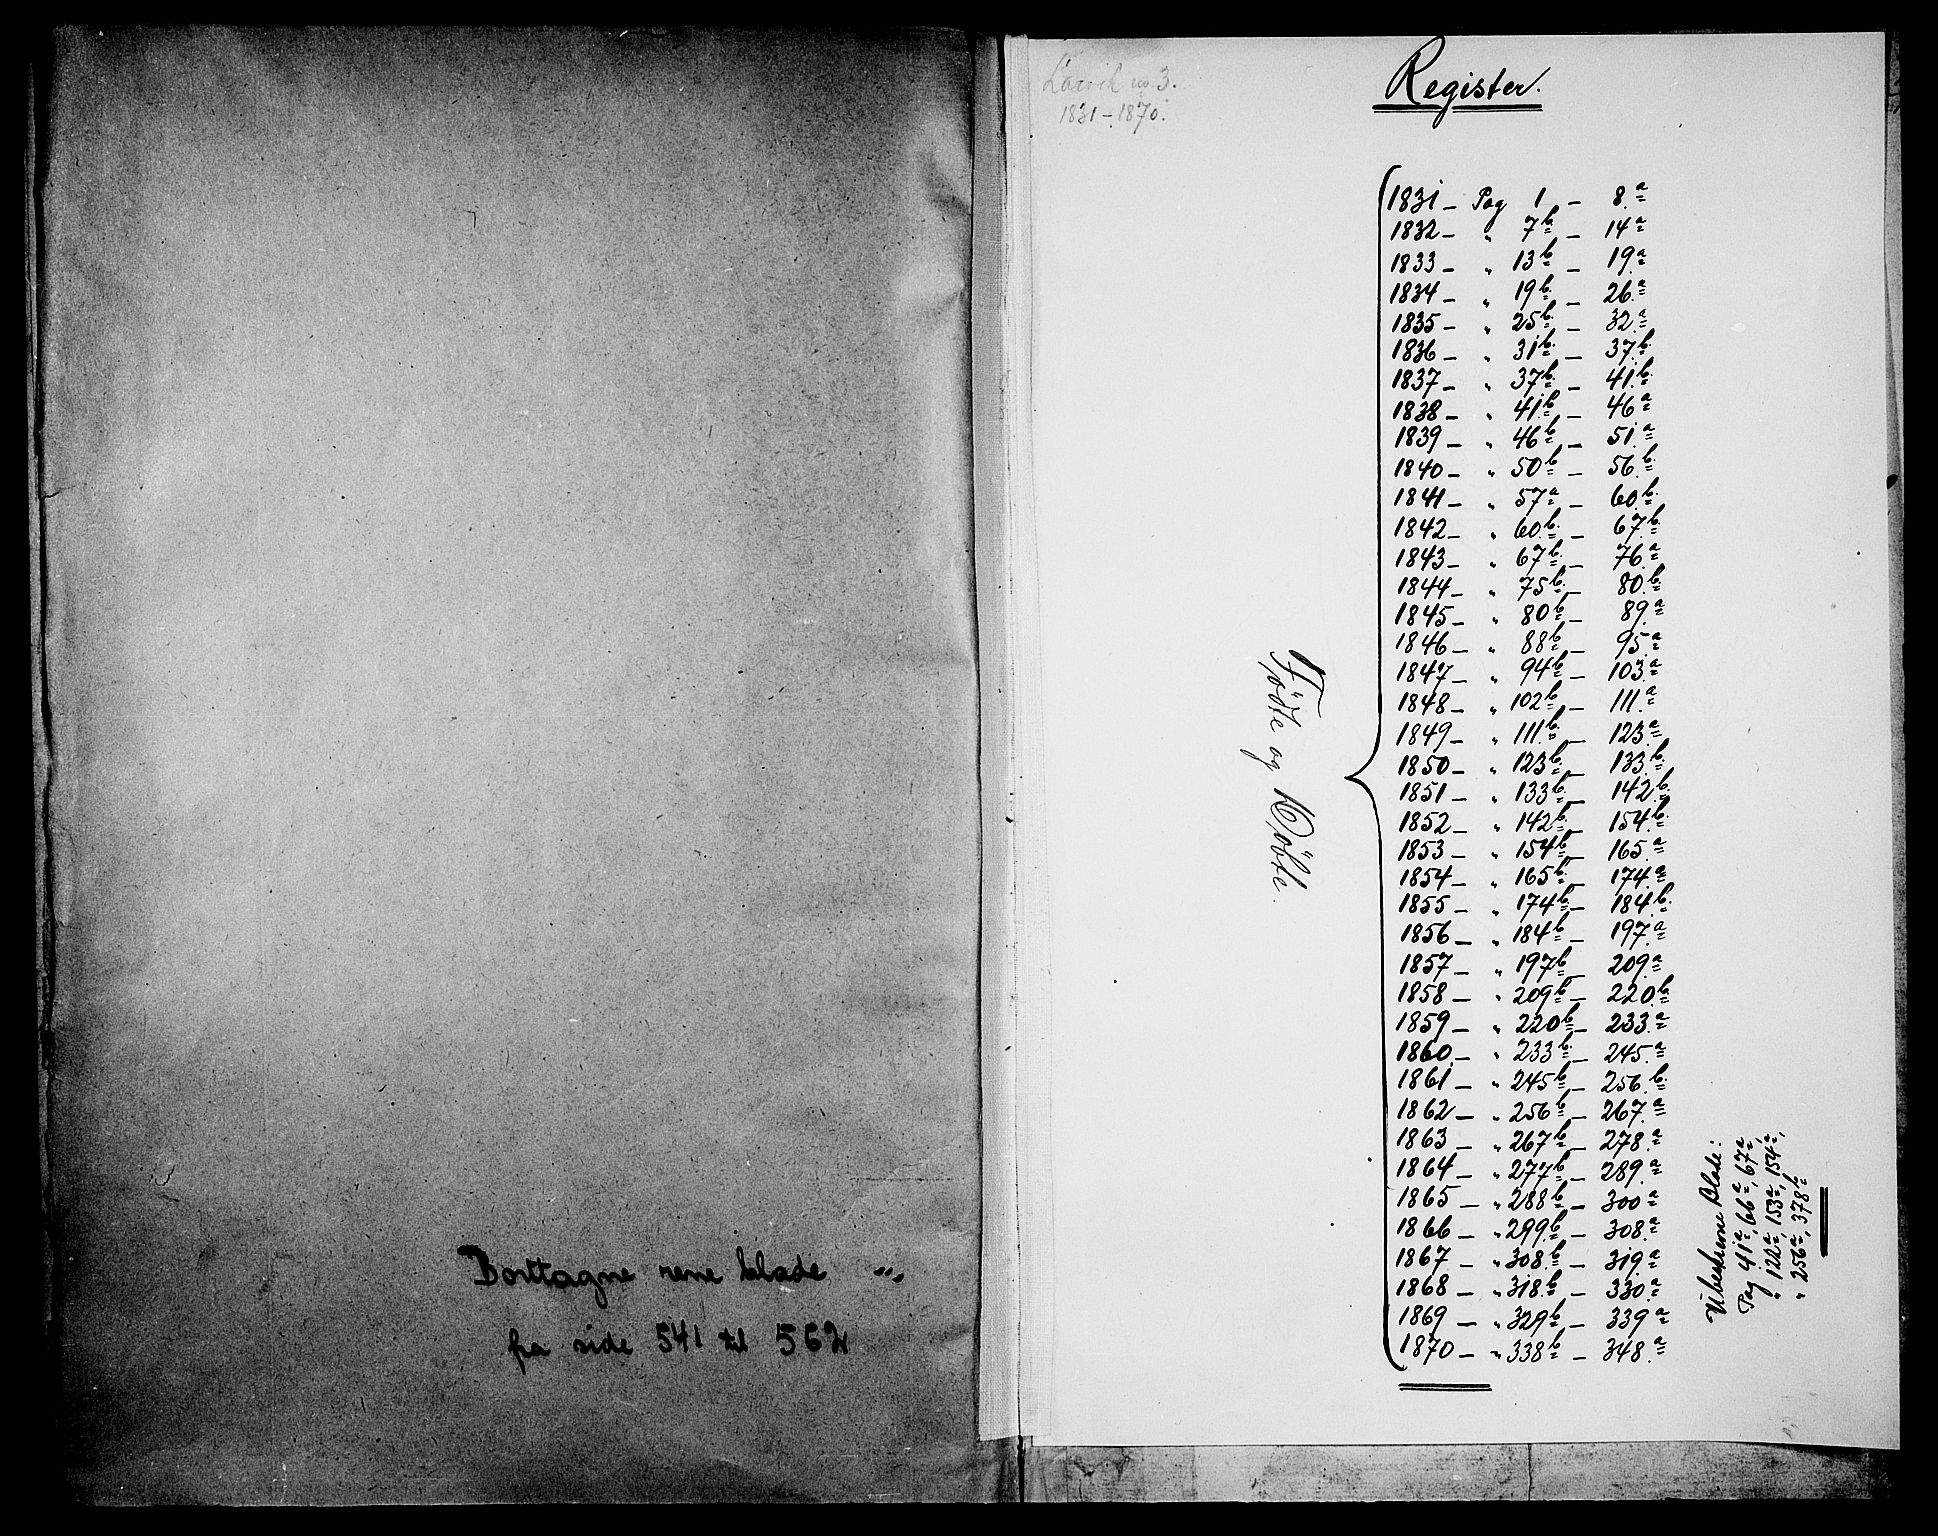 Borttagne rene blade
fra side 541 til 562
Larvik no. 3.
1831–1870.
Register.
Födte og Döbte.
1831 – Pag 1 – 8.a
1832 – " 7b – 14a
1833 – " 13b – 19.a
1834 – " 19b – 26.a
1835 – " 25b – 32.a
1836 – " 31b – 37.b
1837 – " 37b – 41.b
1838 – " 41.b – 46a
1839 – " 46b – 51.a
1840 – " 50b – 56.b
1841 – " 57a – 60.b
1842 – " 60.b – 67.b
1843 – " 67b – 76.a
1844 – " 75b – 80.b
1845 – " 80b – 89.a
1846 – " 88b – 95.a
1847 – " 94b – 103.a
1848 – " 102b – 111.a
1849 – " 111.b – 123.a
1850 – " 123b – 133.b
1851 – " 133b – 142b
1852 – " 142b – 154.b
1853 – " 154b – 165.a
1854 – " 165b – 174.a
1855 – " 174b – 184.b
1856 – " 184b – 197.a
1857 – " 197b – 209.a
1858 – " 209b – 220.b
1859 – " 220b – 233.a
1860 – " 233b – 245.a
1861 – " 245b – 256.b
1862 – " 256b – 267.a
1863 – " 267b – 278.a
1864 – " 277b – 289.a
1865 – " 288b – 300a
1866 – " 299.b – 308.a
1867 – " 308b – 319.a
1868 – " 318.b – 330.a
1869 – " 329b – 339a
1870 – " 338b – 348.a
Ubeskrevne Blade:
Pag 41a, 66a, 67a,
" 122a, 153a, 154a,
" 256a, 378b